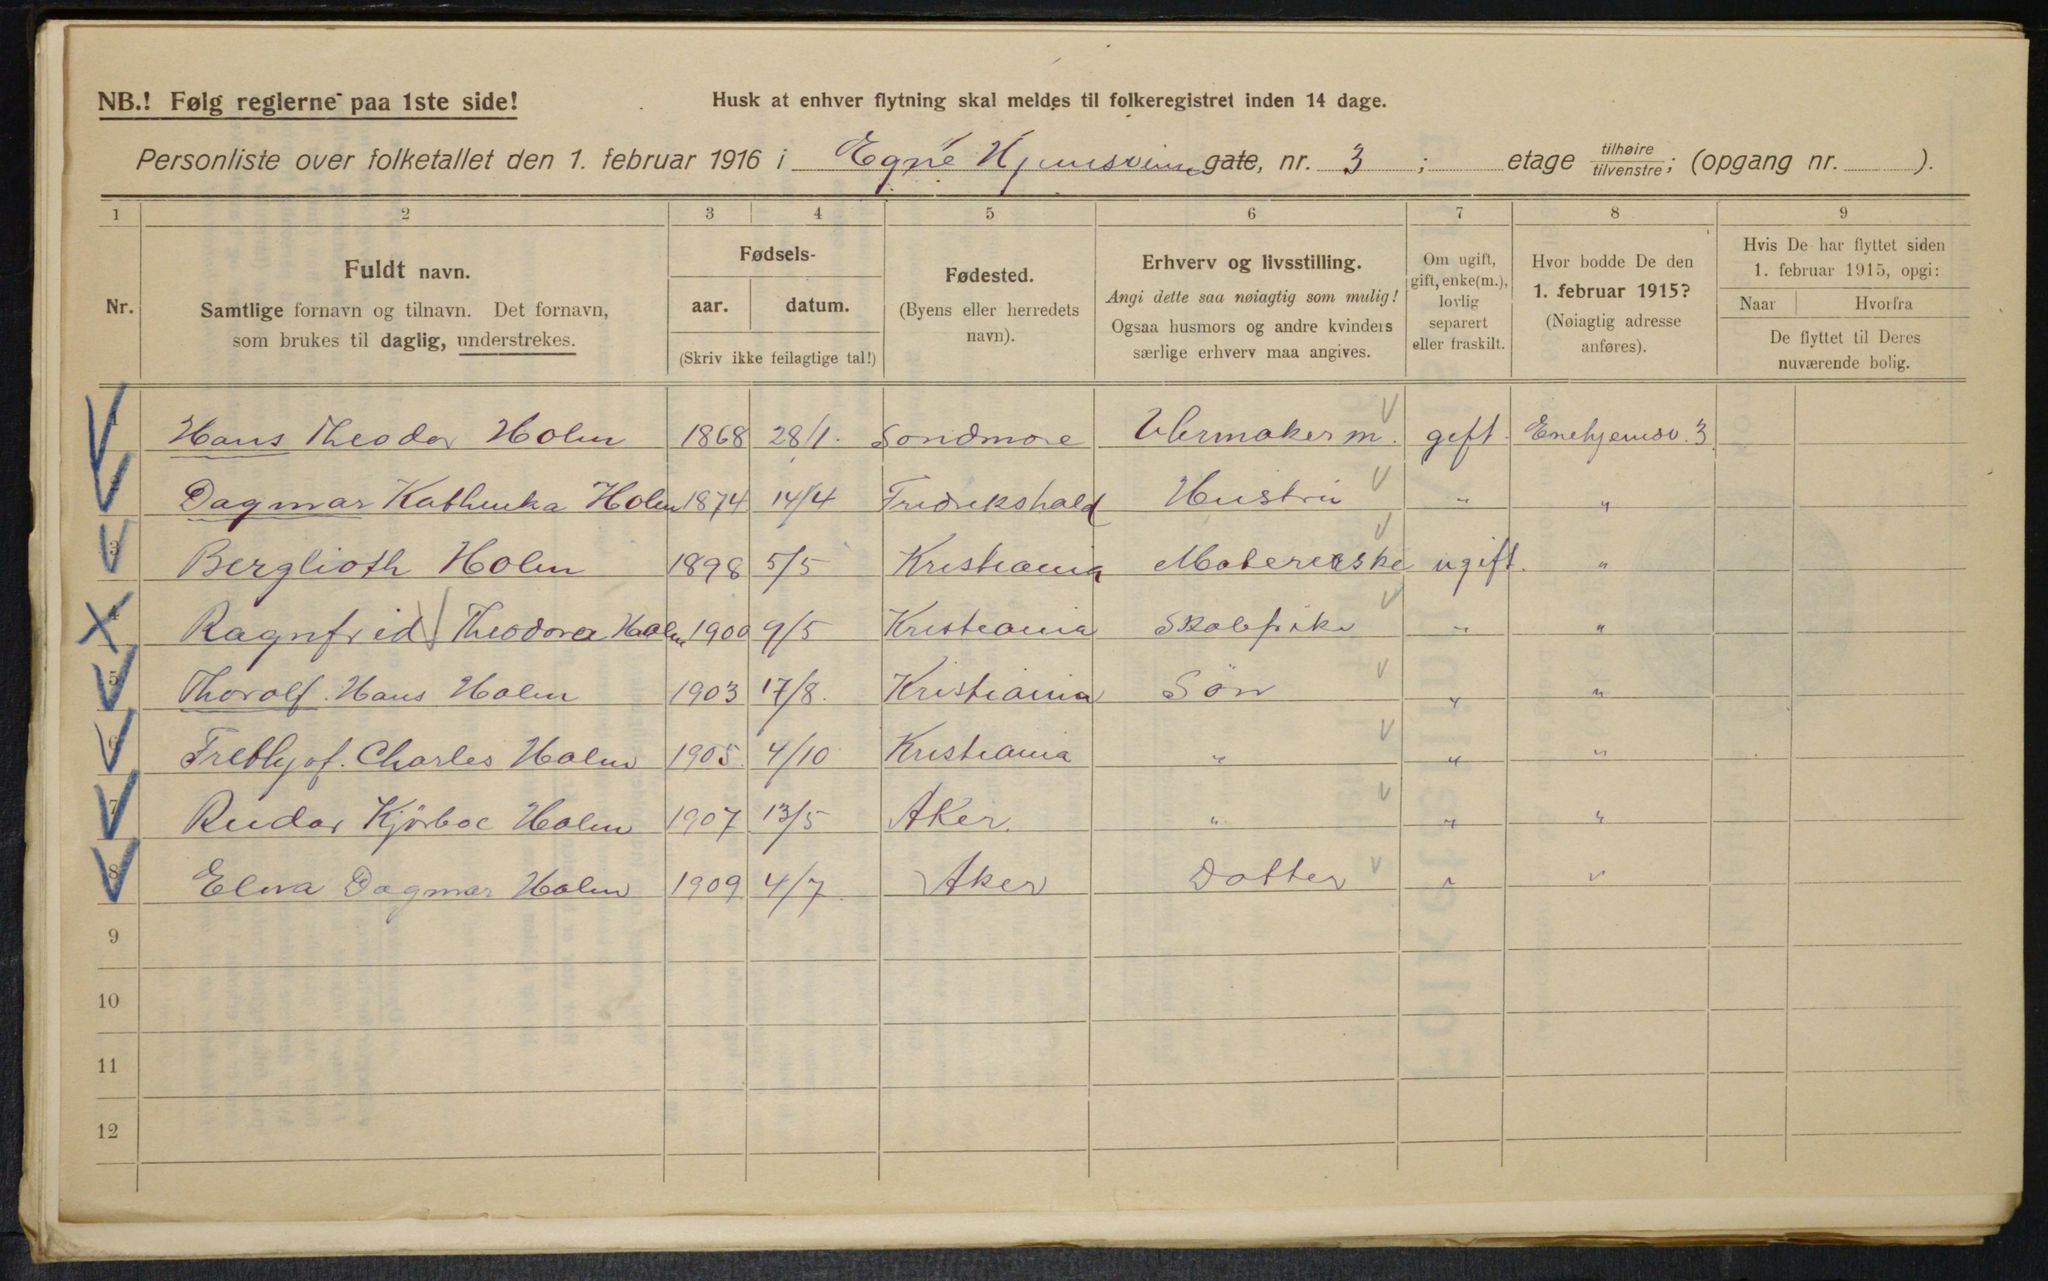 NB.! Følg reglerne paa 1ste side!
Husk at enhver flytning skal meldes til folkeregistret inden 14 dage.
Personliste over folketallet den 1. februar 1916 i Egne Hjemsvei gate, nr. 3 ; etage tilhøire/tilvenstre; (opgang nr. ).
1 2 3 4 5 6 7 8 9
Nr.
Fuldt navn.
Samtlige fornavn og tilnavn. Det fornavn,
som brukes til daglig, understrekes.
Fødsels-
aar. datum.
(Skriv ikke feilagtige tal!)
Fødested.
(Byens eller herredets
navn).
Erhverv og livsstilling.
Angi dette saa nøiagtig som mulig!
Ogsaa husmors og andre kvinders
særlige erhverv maa angives.
Om ugift,
gift, enke(m.),
lovlig
separert
eller fraskilt.
Hvor bodde De den
1. februar 1915?
(Nøiagtig adresse
anføres).
Hvis De har flyttet siden
1. februar 1915, opgi:
Naar Hvorfra
De flyttet til Deres
nuværende bolig.
1 Hans Theodor Holm 1868 28/1. Søndmøre Uhrmaker m. gift. Enehjemsv. 3
Dagmar Kathinka Holm 1874 14/4 Fredrikshald Hustru " "
3 Berglioth Holm 1898 5/5 Kristiania ugift. "
4 Ragnfrid Theodora Holm 1900 9/5 Kristiania Skolepike " "
5 Thorolf. Hans Holm 1903 17/8. Kristiania Søn " "
6 Frethjof. Charles Holm 1905. 4/10 Kristiania " " "
7 Reidar Kjørboe Holm 1907 13/5 Aker. " " "
8 Elna Dagmar Holm 1909 4/7. Aker Datter " "
9
10
11
12